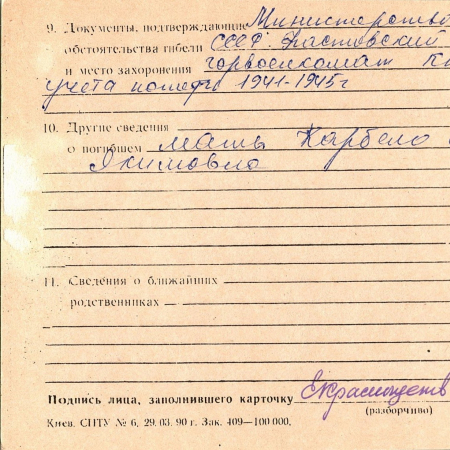 9. Документы, подтверждающие Министерство
обстоятельства гибели СССР. Фастовский
и место захоронения горвоенкомат Кн
учета потерь 1941-1945г
10. Другие сведения
о погибшем мать Карбело
Якимовна
11. Сведения о ближайших
родственниках
Подпись лица, заполнившего карточку
(разборчиво)
Киев. СПТУ № 6, 29. 03. 90 г. Зак. 409—100 000.